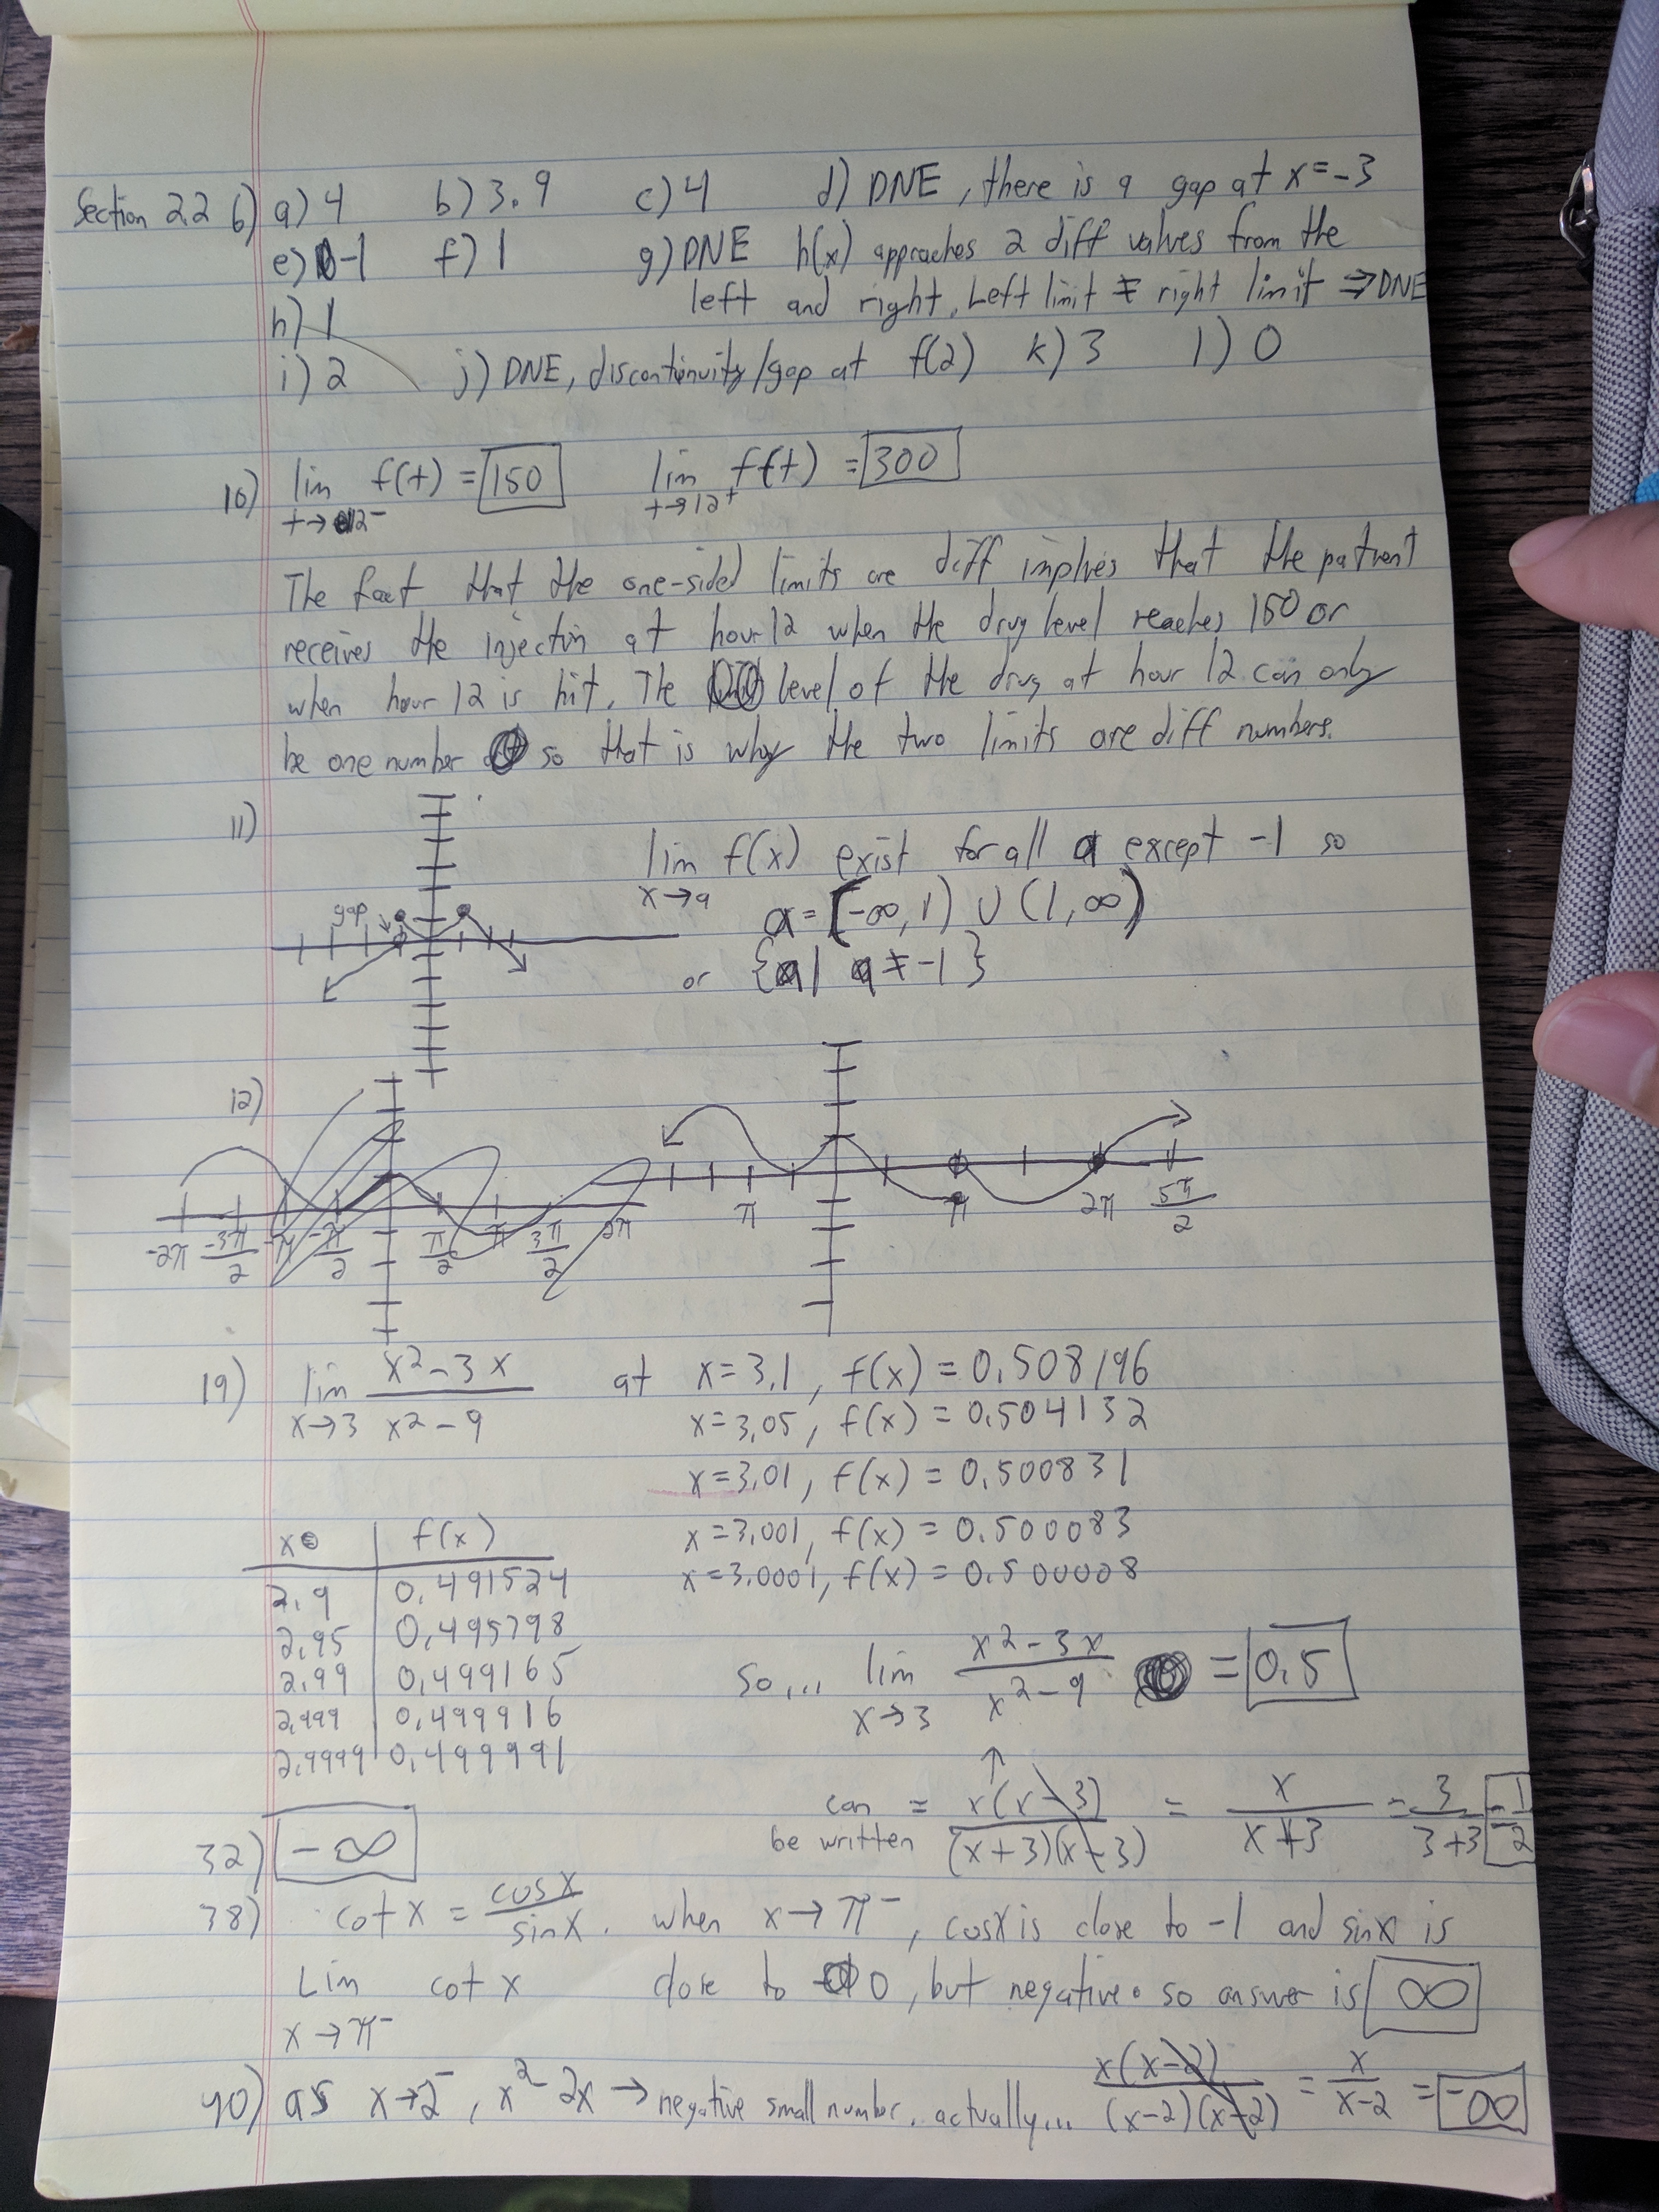 Section 2.2 6) a) 4 b) 3.9 c) 4 d) DNE, there is a gap at x=-3
e) -1 f) 1 g) DNE h(x) approaches 2 diff values from the
left and right. Left limit ≠ right limit ⇒ DNE
h) 1
i) 2 j) DNE, discontinuity/gap at f(2) k) 3 l) 0
10) lim f(t) = 150 lim f(t) = 300
t→12⁻ t→12⁺
The fact that the one-sided limits are diff implies that the patient
receives the injectin at hour 12 when the drug level reaches 150 or
when hour 12 is hit. The level of the drug at hour 12 can only
be one number so that is why the two limits are diff numbers.
11)
lim f(x) exist for all a except -1 so
x→a
a = (-∞, 1) ∪ (1, ∞)
gap
or {a | a ≠ -1}
12)
-2π -3π/2 -π -π/2 π/2 π 3π/2 2π
π π 2π 5π/2
19) lim x²-3x / x²-9 at x=3.1, f(x) = 0.508196
x→3
x=3.05, f(x) = 0.504132
x=3.01, f(x) = 0.500831
x=3.001, f(x) = 0.500083
x=3.0001, f(x) = 0.500008
x f(x)
2.9 0.491524
2.95 0.495798
2.99 0.499165
2.999 0.499916
2.9999 0.499991
So... lim x²-3x / x²-9 = 0.5
x→3
↑
can be written = x(x-3) / (x+3)(x-3) = x / x+3 = 3 / 3+3 = 1/2
32) -∞
38) cot x = cosx / sinx. when x→π⁻, cosx is close to -1 and sinx is
Lim cot x close to 0, but negative. so answer is ∞
x→π⁻
40) as x→2⁻, x²-2x → negative small number. actually... x(x-2) / (x-2)(x-2) = x / x-2 = -∞